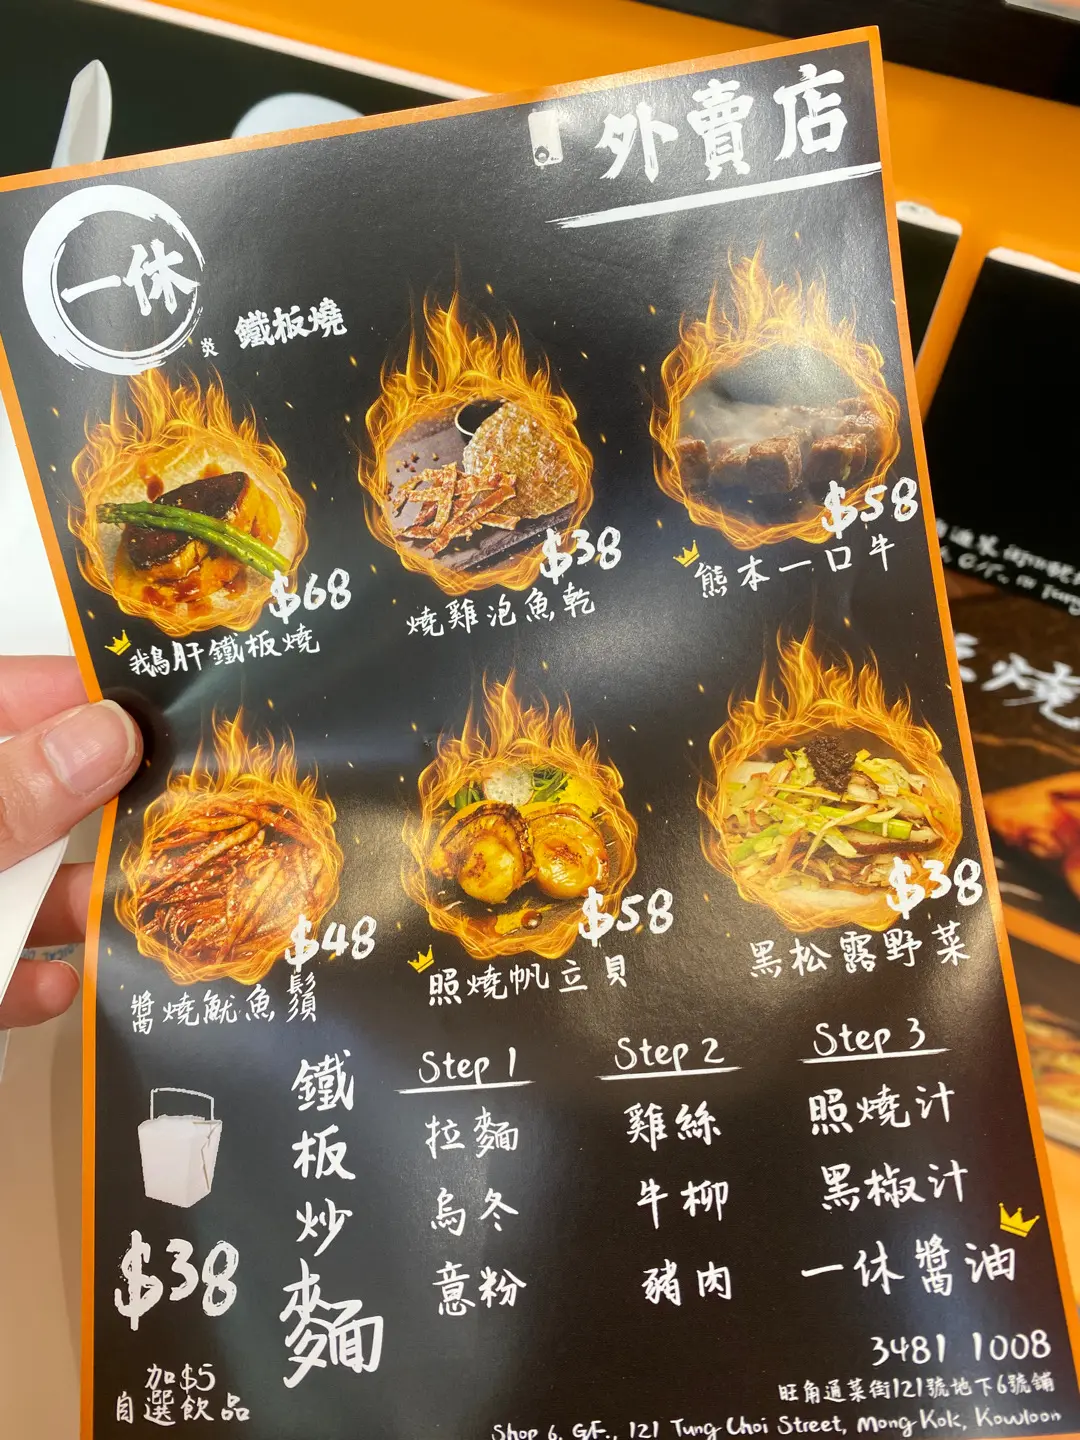 外賣店
一休
炎 鐵板燒
$68
鵝肝鐵板燒
$38
燒雞泡魚乾
$58
熊本一口牛
$48
醬燒魷魚鬚
$58
照燒帆立貝
$38
黑松露野菜
鐵板炒麵
$38
加$5
自選飲品
Step 1
拉麵
烏冬
意粉
Step 2
雞絲
牛柳
豬肉
Step 3
照燒汁
黑椒汁
一休醬油
3481 1008
旺角通菜街121號地下6號舖
Shop 6, G/F., 121 Tung Choi Street, Mong Kok, Kowloon
燒